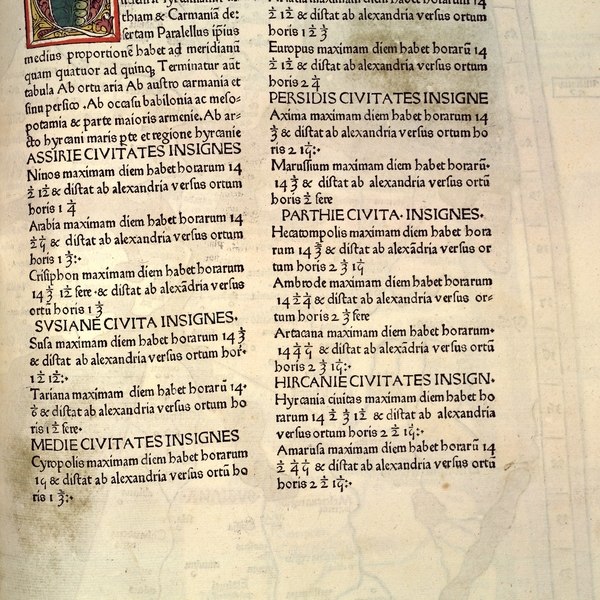 thiam & Carmaniā de:
sertam Parallelus ip̄ius
medius proportionē habet ad meridianū
quam quatuor ad quinqꝫ Terminatur aūt
tabula Ab ortu aria Ab austro carmania et
sinu persico. Ab occasu babilonia ac meso-
potamia & parte maioris armenie. Ab ar-
cto hyrcani maris pte et regione hyrcanie
ASSIRIE CIVITATES INSIGNES
Ninos maximam diem habet horarum 14
& distat ab alexandria versus ortum
horis 1
Arabia maximam diem habet horarum 14
& distat ab alexandria versus ortum
horis 1
Ctisiphon maximam diem habet horarum
14 fere & distat ab alexādria versus
ortū horis 1
SVSIANE CIVITA INSIGNES.
Susa maximam diem habet horarum 14
& distat ab alexandria versus ortum hor.
Tariana maximam diem habet horarū 14.
& distat ab alexandria versus ortum ho
ris fere.
MEDIE CIVITATES INSIGNES
Cyropolis maximam diem habet horarum
& distat ab alexandria versus ortū ho
ris 1
& distat ab alexandria versus ortum
horis 1
Europus maximam diem habet horarū 14
& distat ab alexandria versus ortum
horis 2
PERSIDIS CIVITATES INSIGNE
Axima maximam diem habet horarum 14
& distat ab alexandria versus ortum ho
ris 2
Marussium maximam diem habet horarū.
14 & distat ab alexandria versus ortū
horis fere
PARTHIE CIVITA. INSIGNES.
Hecatompolis maximam diem habet hora
rum 14 & distat ab alexādria versus or
tum horis 2
Ambrode maximam diem habet horarum
14 & distat ab alexandria versus or-
tum horis 2 fere
Artacana maximam diem habet horarum.
14 & distat ab alexādria versus ortū
horis 2
HIRCANIE CIVITATES INSIGN.
Hyrcania ciuitas maximam diem habet ho
rarum 14 & distat ab alexandria
versus ortum horis 2
Amarusa maximam diem habet horarū 14
& distat ab alexandria versus ortū
horis 2